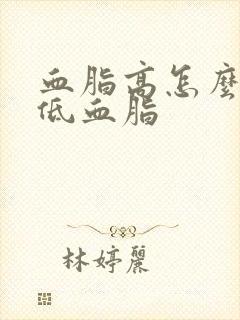 血脂高怎麼
低血脂
林婷麗